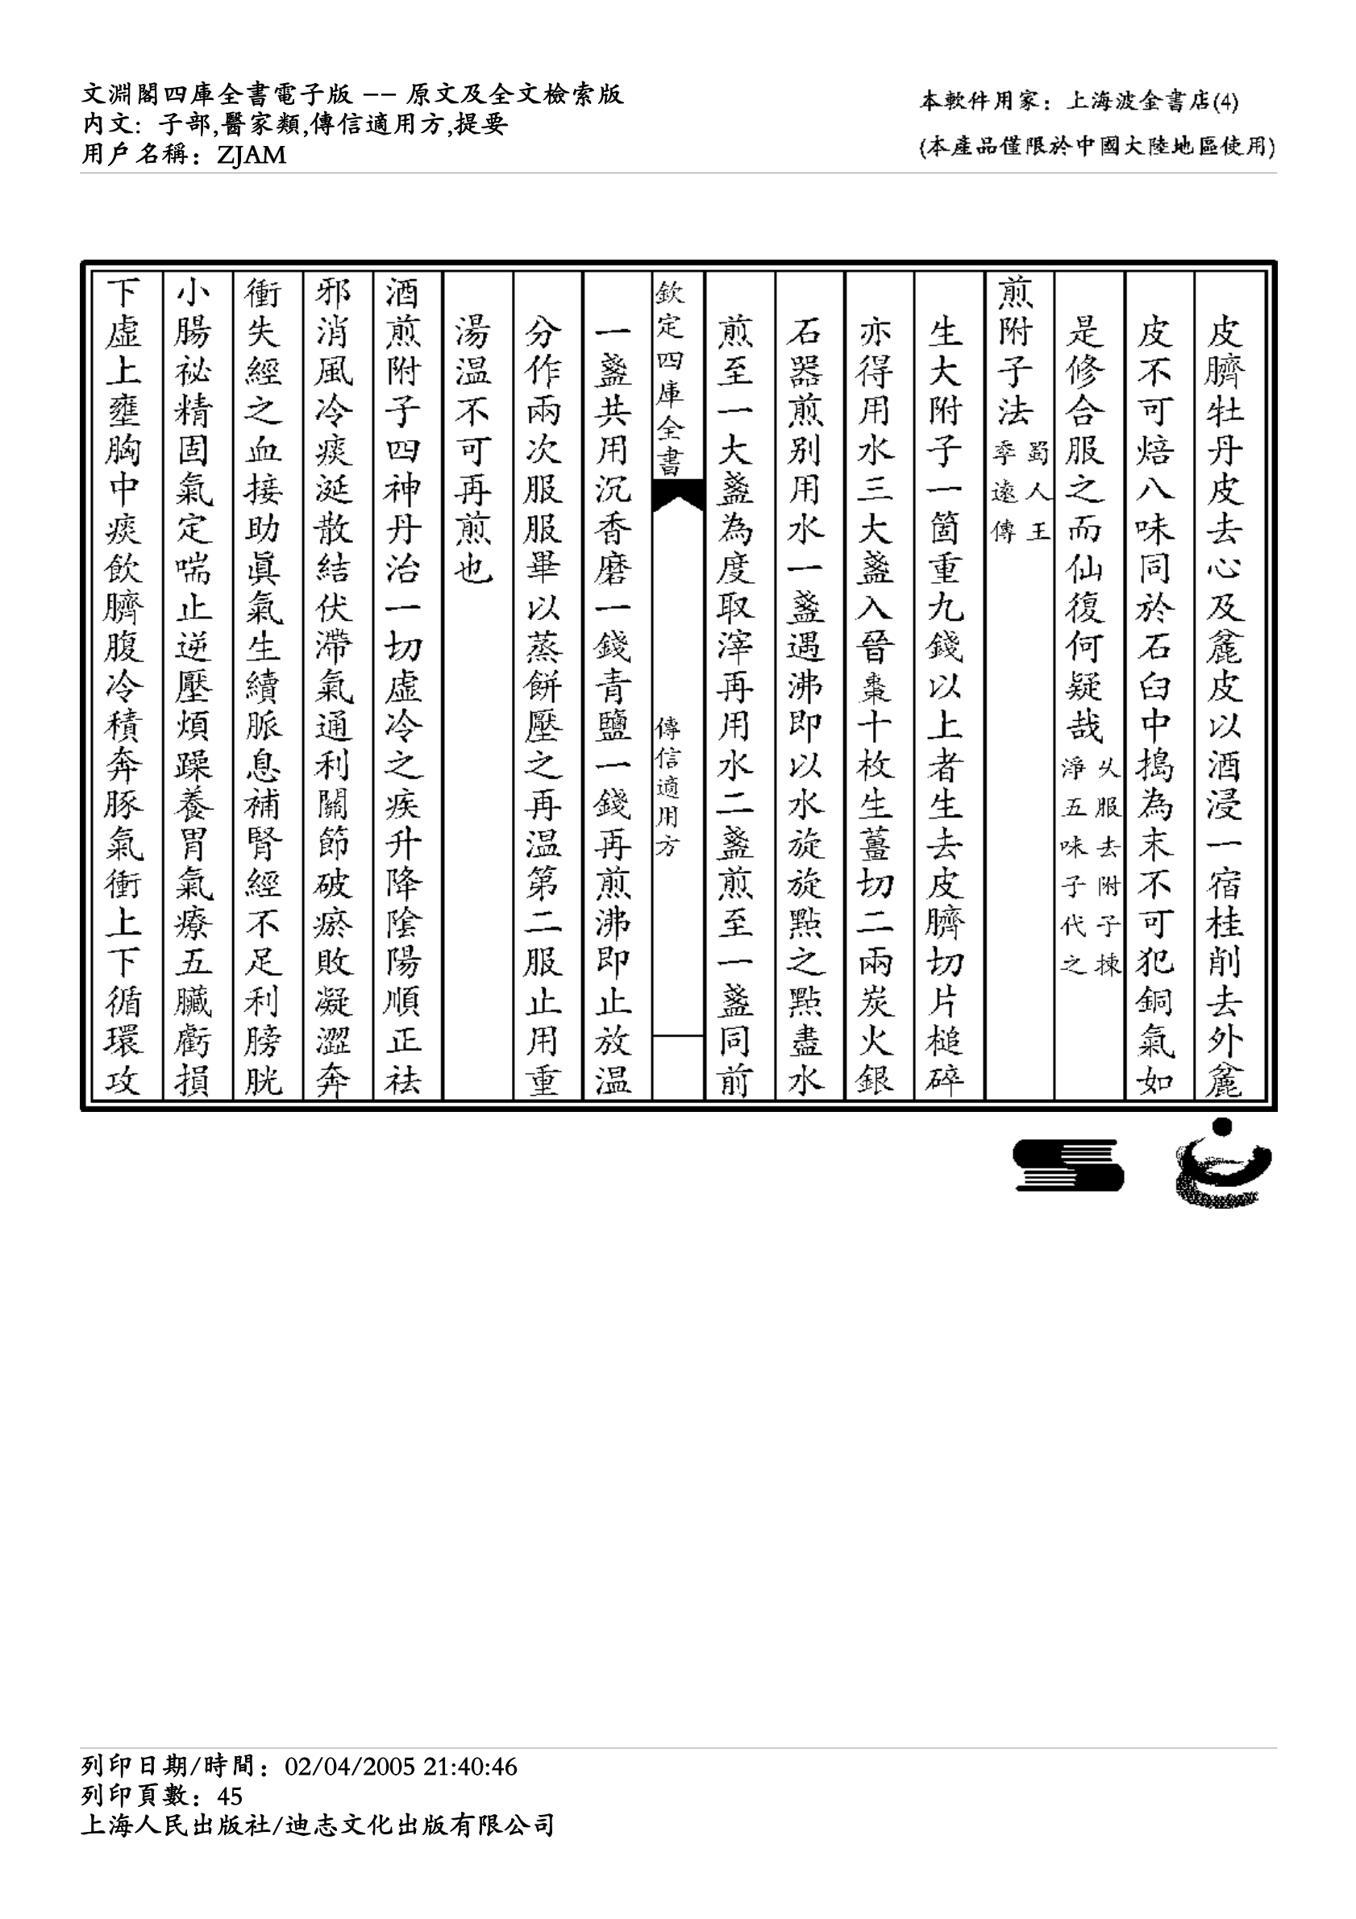 文淵閣四庫全書電子版 -- 原文及全文檢索版
內文: 子部,醫家類,傳信適用方,提要
用戶名稱: ZJAM
本軟件用家: 上海波金書店(4)
(本產品僅限於中國大陸地區使用)
皮臍牡丹皮去心及麄皮以酒浸一宿桂削去外麄
皮不可焙八味同於石臼中搗為末不可犯銅氣如
是修合服之而仙復何疑哉乆服去附子揀淨五味子代之
煎附子法蜀人王季遠傳
生大附子一箇重九錢以上者生去皮臍切片槌碎
亦得用水三大盞入晉棗十枚生薑切二兩炭火銀
石器煎别用水一盞遇沸即以水旋旋點之點盡水
煎至一大盞為度取滓再用水二盞煎至一盞同前
欽定四庫全書
傳信適用方
一盞共用沉香磨一錢青鹽一錢再煎沸即止放温
分作兩次服服畢以蒸餅壓之再温第二服止用重
湯温不可再煎也
酒煎附子四神丹治一切虚冷之疾升降陰陽順正祛
邪消風冷痰涎散結伏滯氣通利關節破瘀敗凝澀奔
衝失經之血接助眞氣生續脈息補腎經不足利膀胱
小腸祕精固氣定喘止逆壓煩躁養胃氣療五臟虧損
下虚上壅胸中痰飲臍腹冷積奔豚氣衝上下循環攻
列印日期/時間: 02/04/2005 21:40:46
列印頁數: 45
上海人民出版社/迪志文化出版有限公司